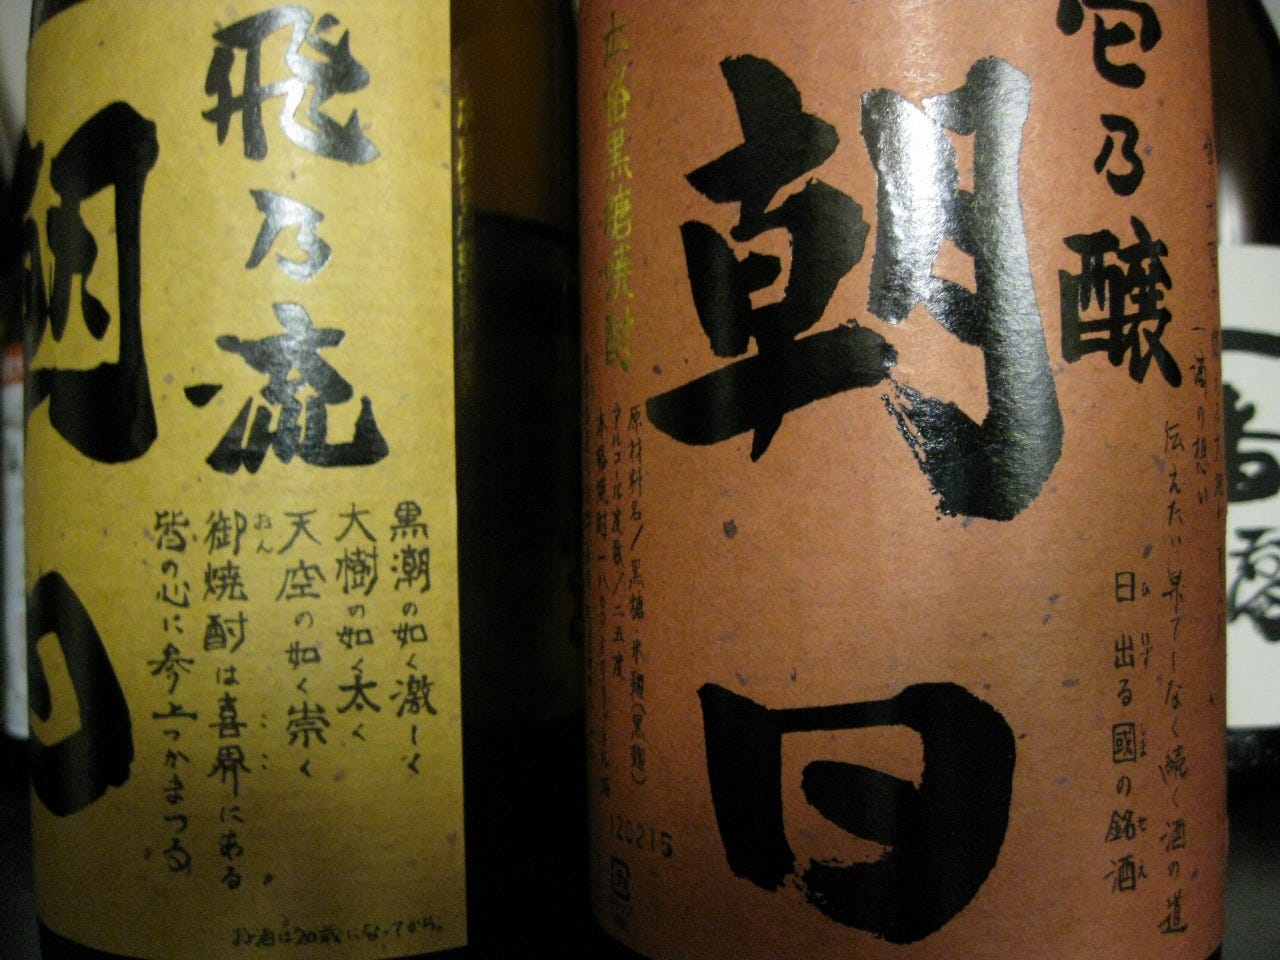 飛乃流
朝日
黒潮の如く激しく
大樹の如く太く
天空の如く崇く
御焼酎は喜界にある
おん
ここ
皆の心に参上つかまつる
お酒は20歳になってから。
壱乃醸
朝日
一滴の想い
伝えたい果てしなく続く酒の道
日出る國の銘酒
ひ いず くに せえ
本格黒糖焼酎
原材料名/黒糖・米麹(黒麹)
アルコール度数/二五度
本格焼酎
120215